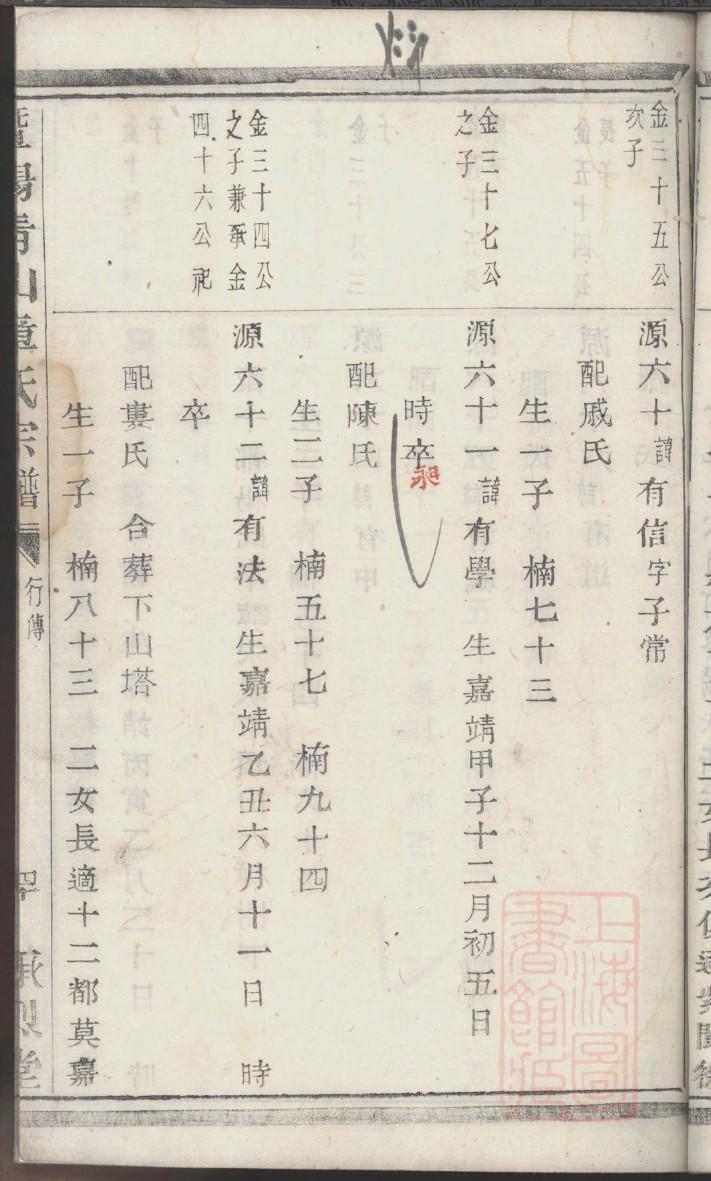 金三十五公
次子
源六十諱有信字子常
配戚氏
生一子 楠七十三
金三十七公
之子
源六十一諱有學 生嘉靖甲子十二月初五日
時卒
配陳氏
生二子 楠五十七 楠九十四
金三十四公
之子兼承金
四十六公祀
源六十二諱有法 生嘉靖乙丑六月十一日 時
卒
配婁氏 合葬下山塔
生一子 楠八十三 二女長適十二都莫嘉
暨陽青山章氏宗譜 行傳 承烈堂
上海圖
書館藏